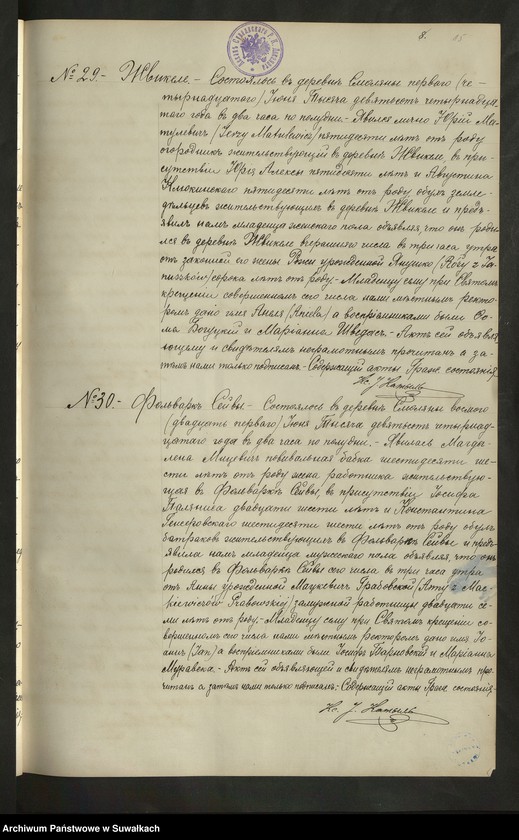 8.
№ 29.- Жвикеле.- Состоялось въ деревнѣ Смоляны перваго /че-
тырнадцатого/ Іюня Тысяча девятьсотъ четырнадца-
таго года въ два часа по полудни.- Явился лично Юрій Ма-
тулевичъ /Jerzy Matulewicz/ пятидесяти лѣтъ отъ роду
огородникъ жительствующій въ деревнѣ Жвикеле, въ при-
сутствіи Юрія Алексы пятидесяти лѣтъ и Августина
пятидесяти лѣтъ отъ роду обухъ земле-
дѣльцевъ жительствующихъ въ деревнѣ Жвикеле и предъ-
явилъ намъ младенца женскаго пола объявляя, что онъ родил-
ся въ деревнѣ Жвикеле вчерашняго числа въ три часа утра
отъ законной его жены Розы урожденной Янушко /Róży z Ja-
nuszków/ сорока лѣтъ отъ роду.- Младенцу сему при Святомъ
крещеніи совершенномъ сего числа нами мѣстнымъ ректо-
ромъ дано имя Анеля /Aniela/ а воспріемниками были Ѳо-
ма Богуцкій и Маріанна Шведасъ.- Актъ сей объявля-
ющему и свидѣтелямъ неграмотнымъ прочитанъ а за-
тѣмъ нами только подписанъ.- Содержащій акты Гражд. состоянія
Кс. J.
№ 30.- Фольваркъ Сейвы.- Состоялось въ деревнѣ Смоляны восьмого
/двадцать перваго/ Іюня Тысяча девятьсотъ четырнад-
цатаго года въ два часа по полудни.- Явилась Магда-
лена Мицевичъ повивальная бабка шестидесяти ше-
сти лѣтъ отъ роду жена работника жительствую-
щая въ Фольваркѣ Сейвы, въ присутствіи Іосифа
двадцати шести лѣтъ и Константина
шестидесяти шести лѣтъ отъ роду обухъ
батраковъ жительствующихъ въ Фольваркѣ Сейвы и предъ-
явила намъ младенца мужескаго пола объявляя, что онъ
родился въ Фольваркѣ Сейвы сего числа въ три часа утра
отъ Анны урожденной Мацкевичъ Грабовской /Anny z Mac-
kiewiczów Grabowskiej/ замужней работницы двадцати се-
ми лѣтъ отъ роду.- Младенцу сему при Святомъ крещеніи со-
вершенномъ сего числа нами мѣстнымъ Ректоромъ дано имя Іо-
аннъ /Jan/ а воспріемниками были Іосифъ и Маріанна
Муравска.- Актъ сей объявляющей и свидѣтелямъ неграмотнымъ про-
читанъ а затѣмъ нами только подписанъ.- Содержащій акты Гражд. состоянія
Кс. J.
Archiwum Państwowe w Suwałkach